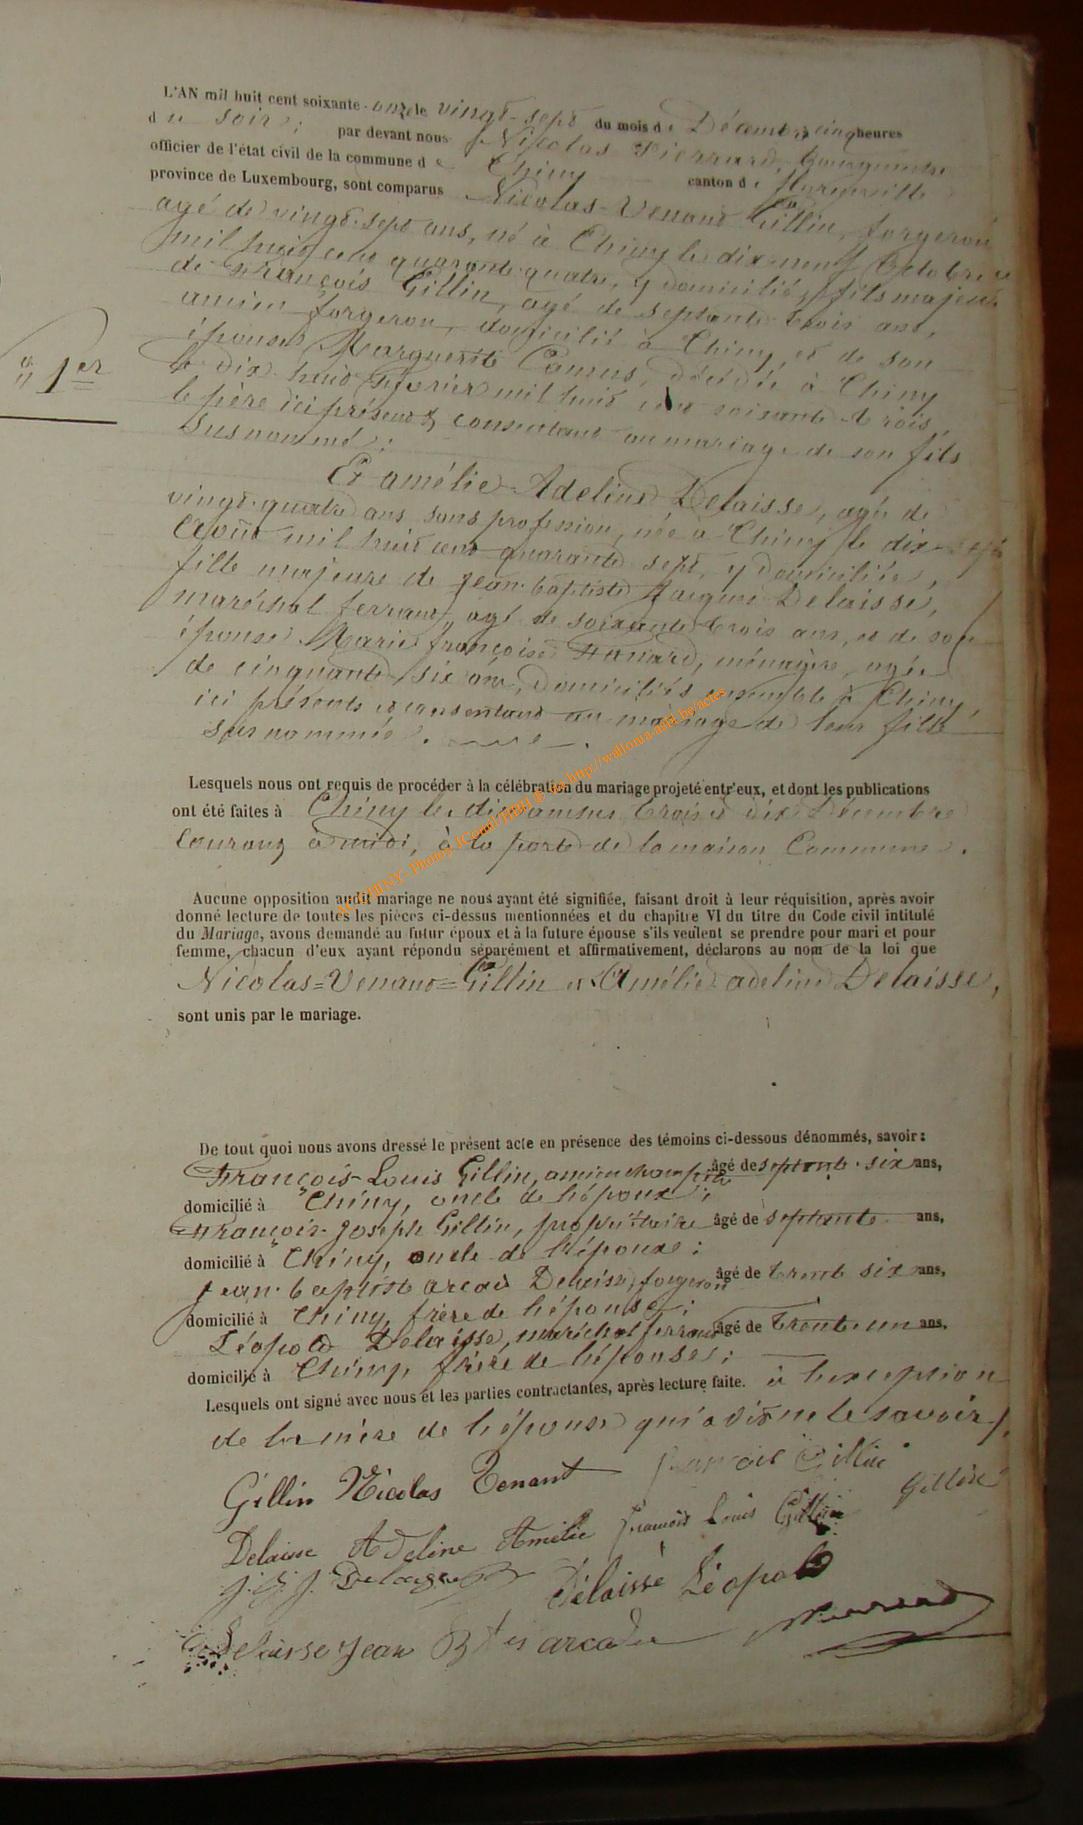 L'AN mil huit cent soixante-onze le vingt-sept du mois de Décembre cinq heures
du soir; par devant nous Nicolas Pierrard, bourgmestre
officier de l'état civil de la commune de Chiny canton de Florenville
province de Luxembourg, sont comparus Nicolas-Venant Gillin, forgeron
agé de vingt-sept ans, né à Chiny le dix-neuf Octobre
mil huit cent quarante-quatre, y domicilié, fils majeur
de François Gillin, agé de septante trois ans,
ancien forgeron, domicilié à Chiny, et de son
épouse Marguerite Camus, décédée à Chiny
1er
le dix-huit février mil huit cent soixante trois,
le père ici présent & consentant au mariage de son fils
susnommé;
Et amélie-Adeline Delaisse, agée de
vingt-quatre ans sans profession, née à Chiny le dix-sept
Août mil huit cent quarante sept, y domiciliée,
fille majeure de Jean-baptiste Jacques Delaisse,
maréchal ferrant, agé de soixante trois ans, et de son
épouse Marie françoise, ménagère, agée
de cinquante six ans, domiciliés ensemble à Chiny,
ici présents et consentant au mariage de leur fille
susnommée.
Lesquels nous ont requis de procéder à la célébration du mariage projeté entr'eux, et dont les publications
ont été faites à Chiny les dimanches trois & dix Décembre
courant à midi, à la porte de la maison Commune.
ACTHINY- http://wallonia-asbl.be/actes
Aucune opposition audit mariage ne nous ayant été signifiée, faisant droit à leur réquisition, après avoir
donné lecture de toutes les pièces ci-dessus mentionnées et du chapitre VI du titre du Code civil intitulé
du Mariage, avons demandé au futur époux et à la future épouse s'ils veulent se prendre pour mari et pour
femme, chacun d'eux ayant répondu séparément et affirmativement, déclarons au nom de la loi que
Nicolas=Venant=Gillin et Amélie adeline Delaisse,
sont unis par le mariage.
De tout quoi nous avons dressé le présent acte en présence des témoins ci-dessous dénommés, savoir:
François-Louis Gillin, ancien âgé de septante-six ans,
domicilié à Chiny, oncle de l'époux;
François-Joseph Gillin, propriétaire âgé de septante ans,
domicilié à Chiny, oncle de l'époux;
Jean-baptiste arcade Delaisse, forgeron âgé de trente six ans,
domicilié à Chiny, frère de l'épouse;
Léopold Delaisse, maréchal ferrant âgé de trente un ans,
domicilié à Chiny, frère de l'épouse;
Lesquels ont signé avec nous et les parties contractantes, après lecture faite. à l'exception
de la mère de l'épouse qui a dit ne le savoir.
Gillin Nicolas Venant françois Gillin
Delaisse Adeline Amélie françois Louis Gillin Gillin
J. B. J. Delaisse Delaisse Léopold
Delaisse Jean Bte arcade Pierrard